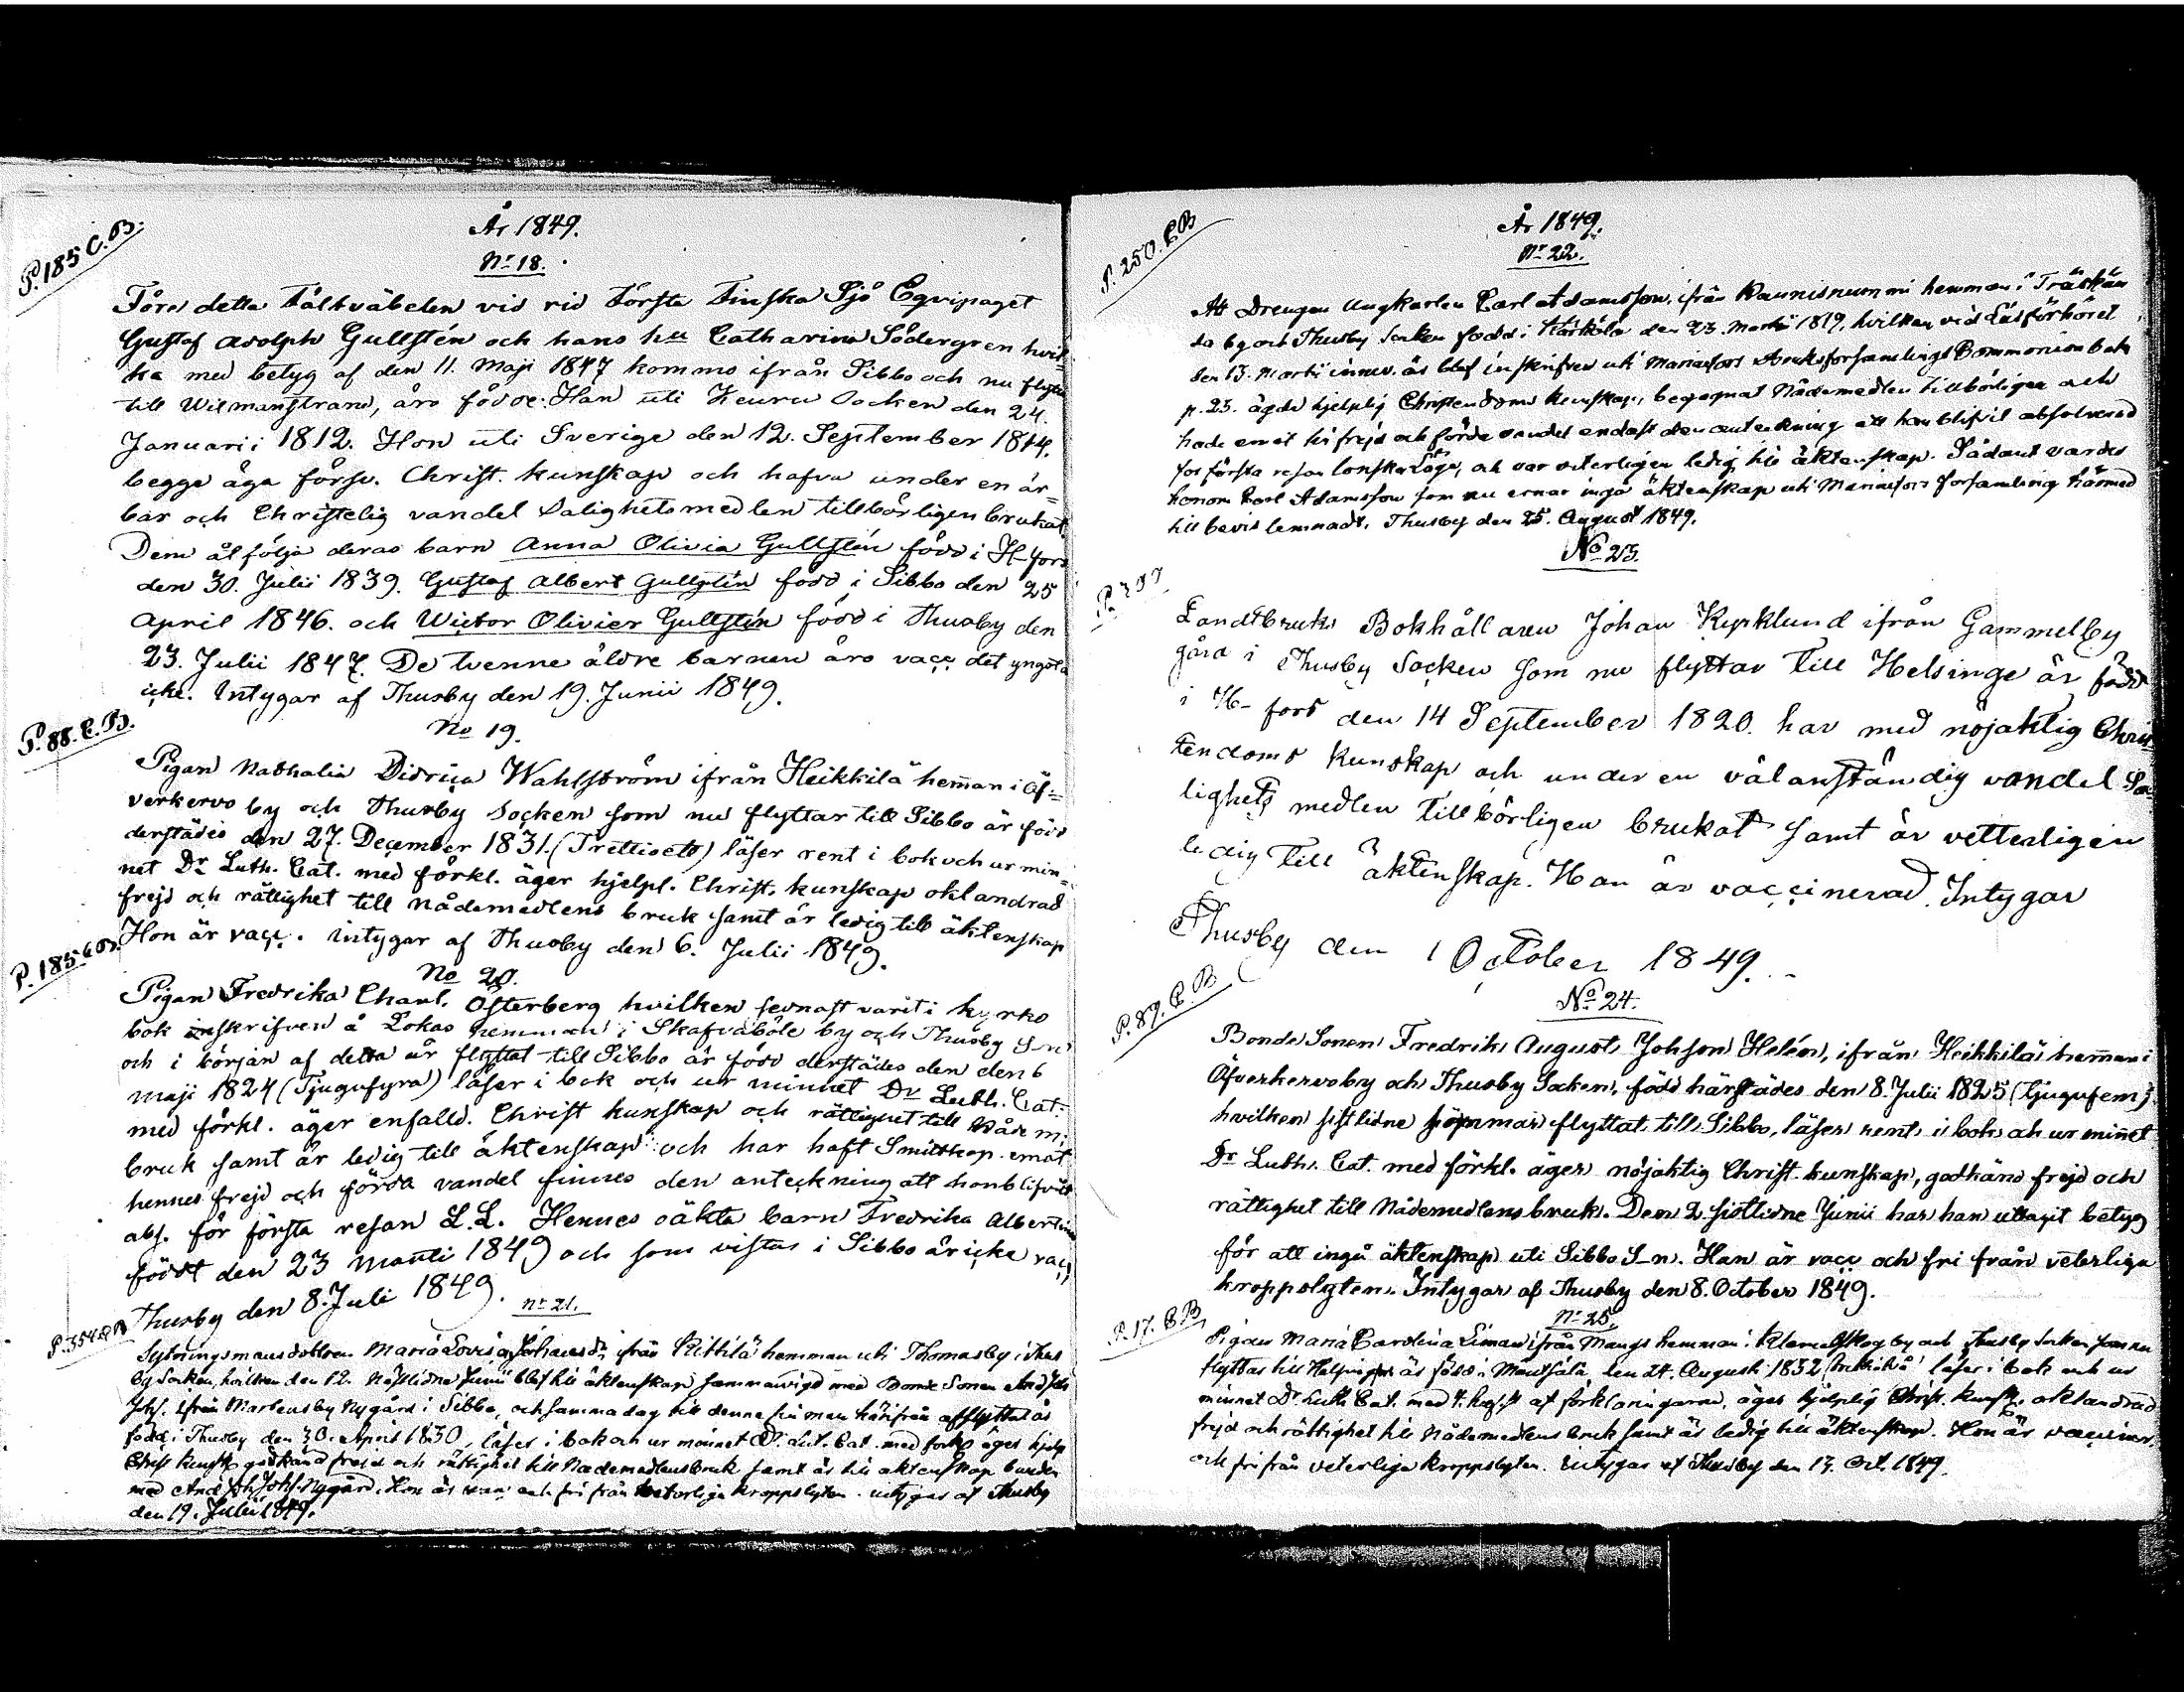 År 1849.
P. 185 C.B.
No 18.
Förd detta Fältväbelen vid vid Första Finska Sjö Eqvipaget
Gustaf Adolph Gullstén och hans hu Catharina Södergren hvil=
ka med betyg af den 11. Maji 1847 kommo ifrån Sibbo och nu flytta
till Wilmanstrand, äro födde: Han uti Keuru Socken den 24.
Januarii 1812. Hon uti Sverige den 12. September 1814.
begge äga försv. Christ. kunskap och hafva under en är=
bar och Christelig vandel Salighetsmedlen tillbörligen brukat
Dem åtfölja deras barn Anna Olivia Gullstén född i H-fors
den 30. Julii 1839. Gustaf Albert Gullstén född i Sibbo den 25
April 1846. och Wictor Olivier Gullstén född i Thusby den
23. Julii 1847. De tvenne äldre barnen äro vacc. det yngsta
icke. Intygar af Thusby den 19. Junii 1849.
P. 88. C.B.
No 19.
Pigan Nathalia Didrica Wahlström ifrån Heikkilä hemman i Öf=
verkervo by och Thusby Socken som nu flyttar till Sibbo är född
derstädes den 27. December 1831. (Trettioett) läser rent i bok och ur min=
net Dr Luth. Cat. med förkl. äger hjelpl. Christ. kunskap oklandrad
frejd och rättighet till nådemedlens bruk samt är ledig till äktenskap
Hon är vacc. intygar af Thusby den 6. Julii 1849.
P. 185 C.B.
No 20.
Pigan Fredrika Charl. Österberg hvilken sednast varit i kyrko
bok inskrifven å Lokas hemman i Skafvaböle by och Thusby S-n
och i början af detta år flyttat till Sibbo är född derstädes den den 6
maji 1824 (Tjugufyra) läser i bok och ur minnet Dr Luth. Cat.
med förkl. äger enfalld. Christ kunskap och rättighet till Nåde m;
bruk samt är ledig till äktenskap och har haft Smittkop. emot
hennes frejd och förda vandel finnes den anteckning att hon blifvit
abs. för första resan L.L. Hennes oäkta barn Fredrika Albertina
födt den 23 Martii 1849 och som vistas i Sibbo är icke vacc.
Thusby den 8. Juli 1849.
P. 354 C.B
No 21.
Sytningsmansdottren Maria Lovisa Johansdr från Kittilä hemman uti Thomasby i Thus
by Socken, hvilken den 12. nästlidne Junii blef till äktenskap sammanvigd med Bonde Sonen And Joh
Johs. ifrån Martensby Nygård i Sibbo, och samma dag till denne sin man härifrån afflyttat är
född i Thusby den 30. April 1830, läser i bok och ur minnet Dr. Lut. Cat. med förkl äger hjelp
Christ kunsk, godkänd frejd och rättighet till Nademedlens bruk samt är till äktenskap bunden
med And Joh Johs. Nygård. Hon är vacc och fri från veterliga kroppslyten. intygas af Thusby
den 19. Julii 1849.
År 1849.
P. 250. C.B
No 22.
Att Drengen Ungkarlen Carl Adamsson, ifrån Kaunisnummi hemman i Träskän
da by och Thusby Socken född i Kärkölä den 23. Martii 1819, hvilken vid Läsförhöret
den 13. Martii innev. år blef inskrifven uti Mariefors Bruksförsamlings Communion Bok
p. 23. ägde hjelplig Christendoms kunskap, begagnat Nådemedlen tillbörligen och
hade emot sin frejd och förda vandel endast den anteckning att han blifvit absolverad
för första resan lönskaläge, och var veterligen ledig till äktenskap. Sådant vardes
honom Carl Adamsson som nu ernar ingå äktenskap uti Mariefors församling härmed
till bevis lemnadt. Thusby den 25. August 1849.
No 23.
Landtbruks Bokhållaren Johan Kyrklund ifrån Gammelby
gård i Thusby Socken som nu flyttar till Helsinge är född
i H-fors den 14 September 1820. har med nöjaktig Chris
tendoms kunskap och under en välanständig vandel Sa=
lighets medlen tillbörligen brukat samt är vetterligen
ledig till äktenskap. Han är vaccinerad. Intygar
Thusby den 1 October 1849.
P. 89. C.B
No 24.
Bonde Sonen Fredrik August Johsson Helén, ifrån Heikkilä hemman i
Öfverkervoby och Thusby Socken, född härstädes den 8. Julii 1825 (tjugufem)
hvilken sistlidne sommar flyttat till Sibbo, läser rent i bok och ur minnet
Dr Luth. Cat. med förkl. äger nöjaktig Christ. kunskap, godkänd frejd och
rättighet till Nådemedlens bruk. Den 2. sistlidne Junii har han uttagit betyg
för att ingå äktenskap uti Sibbo S-n. Han är vacc och fri från veterliga
kroppslyten. Intygar af Thusby den 8. October 1849.
P. 17. C.B.
No 25.
Pigan Maria Carolina Liman ifrån Mangs hemman i Klemetskog by och Thusby Socken som nu
flyttar till Helsingfors är född i Mäntsälä den 24. Augusti 1832 läser i bok och ur
minnet Dr Luth Cat. med af förklaringarna, äger hjelplig Christ. kunsk. oklandrad
frejd och rättighet till Nådemedlens bruk samt är ledig till äktenskap. Hon är vaccin
och fri från veterliga kroppslyten. Intygar af Thusby den 17. Oct. 1849.